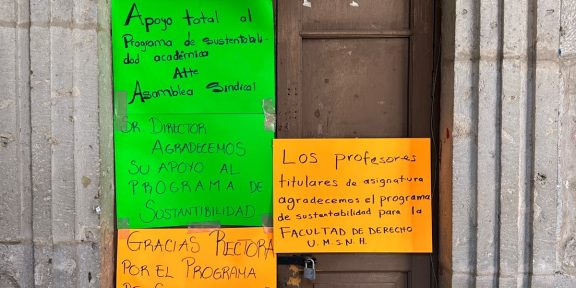 Apoyo total al
Programa de sustentabili-
dad académica
Atte
Asamblea Sindical
DR. DIRECTOR
AGRADECEMOS
SU APOYO AL
PROGRAMA DE
SOSTANTIBILIDAD
Los profesores
titulares de asignatura
agradecemos el programa
de sustentabilidad para la
FACULTAD DE DERECHO
U.M.S.N.H.
GRACIAS RECTORA
POR EL PROGRAMA